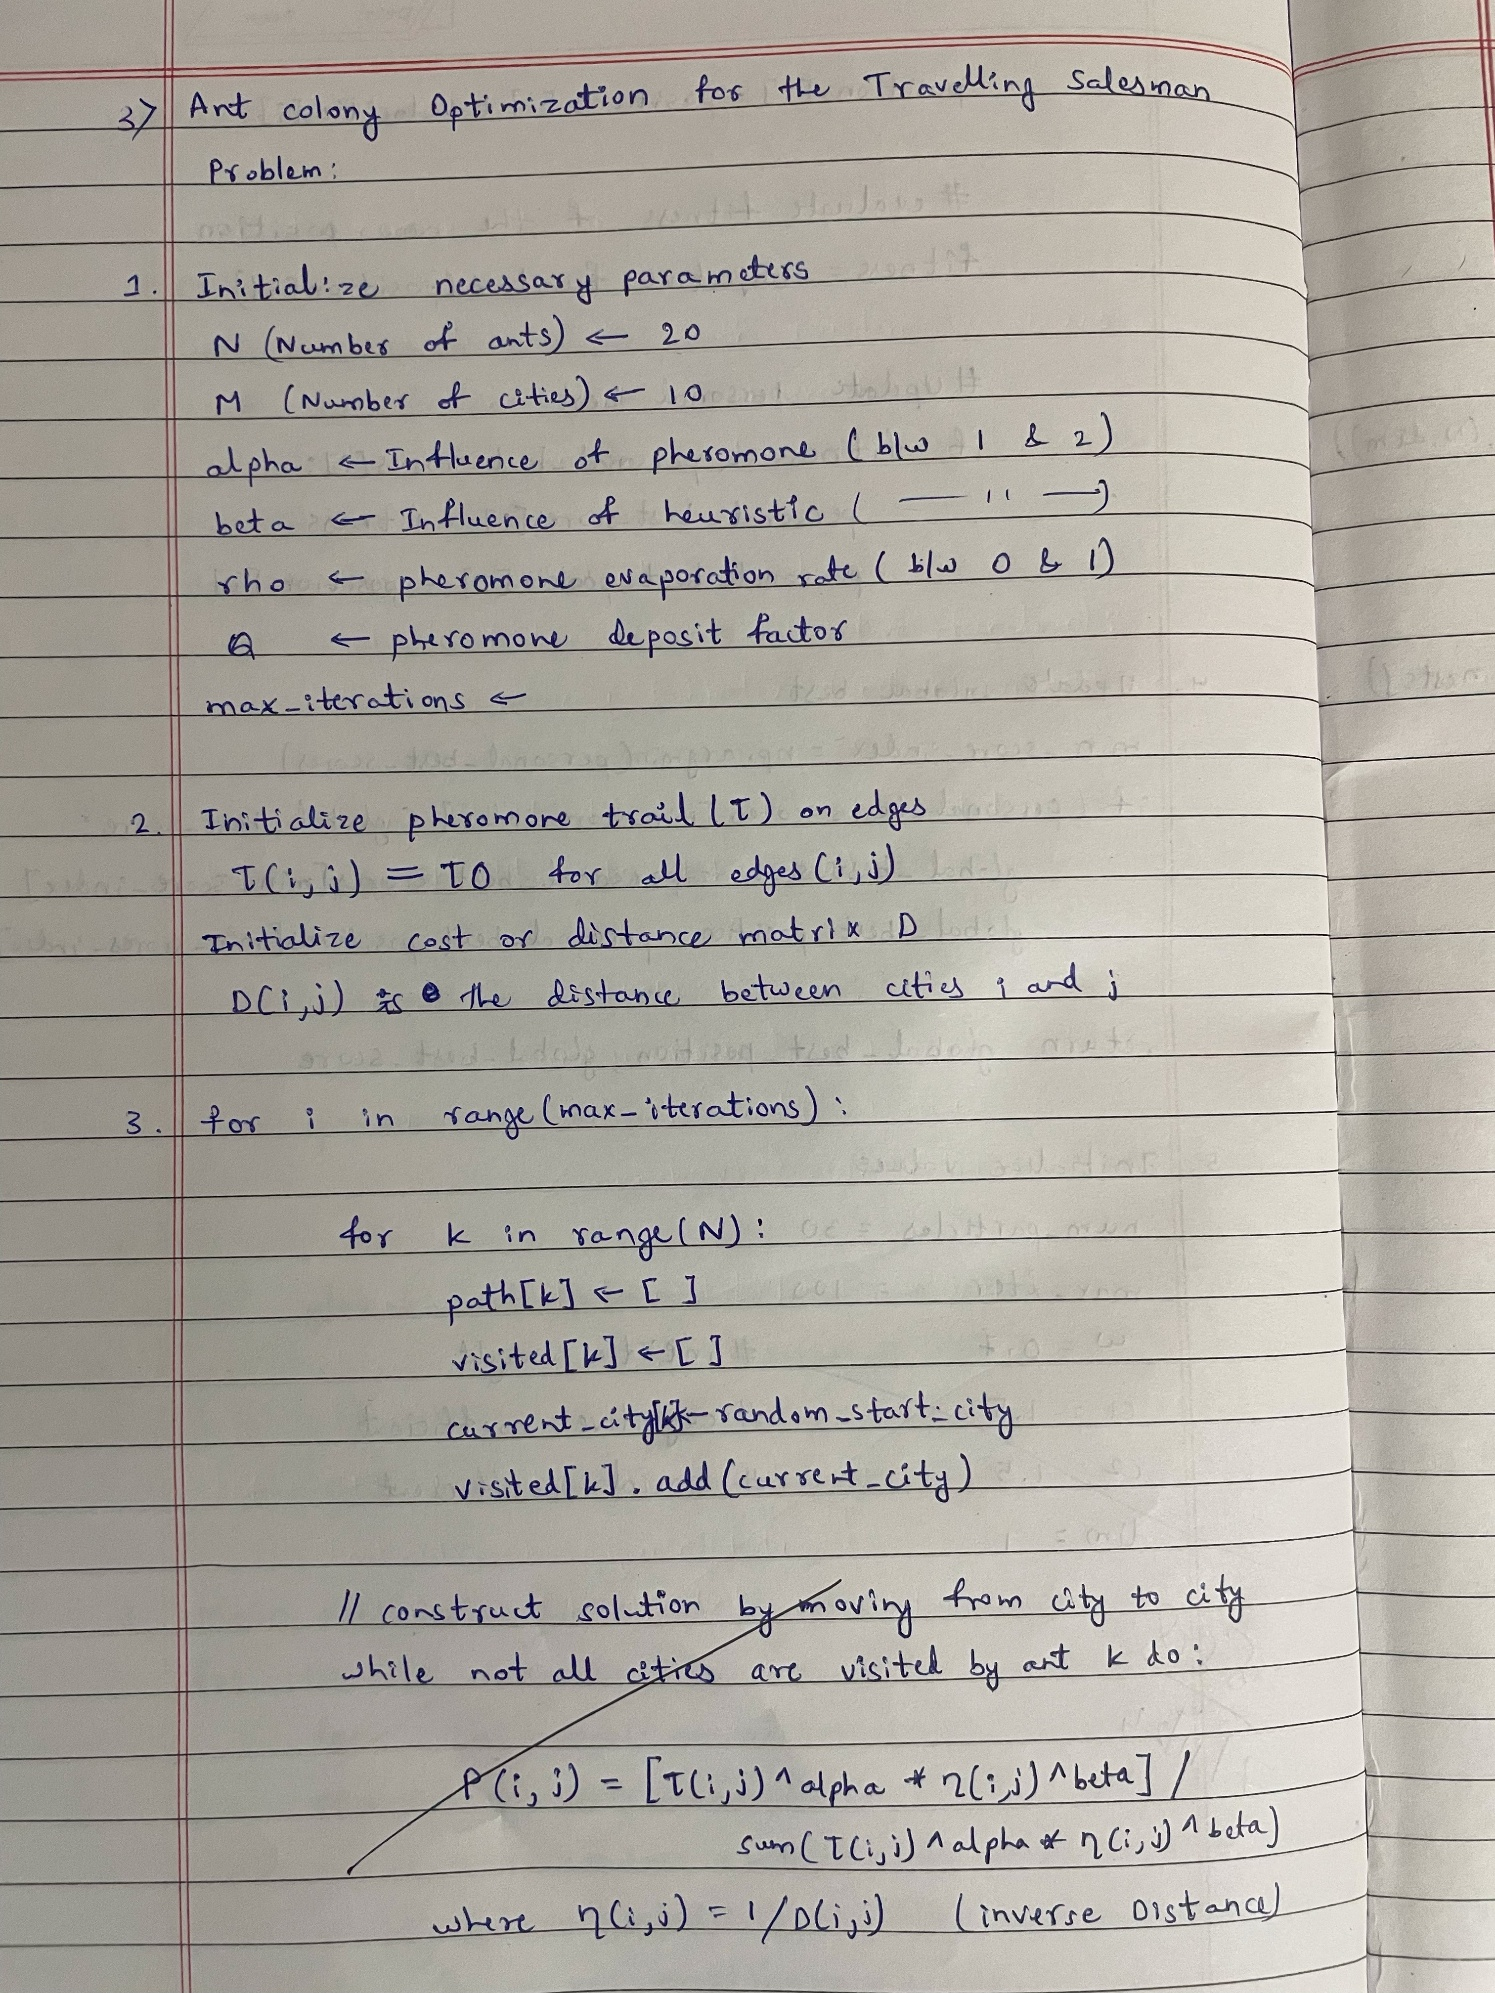 3> Ant colony Optimization for the Travelling Salesman
Problem:
1. Initialize necessary parameters
N (Number of ants) ← 20
M (Number of cities) ← 10
alpha ← Influence of pheromone ( b/w 1 & 2)
beta ← Influence of heuristic ( — 11 —)
rho ← pheromone evaporation rate ( b/w 0 & 1)
Q ← pheromone deposit factor
max_iterations ←
2. Initialize pheromone trail (τ) on edges
τ(i,j) = τ0 for all edges (i,j)
Initialize cost or distance matrix D
D(i,j) is the distance between cities i and j
3. for i in range(max_iterations):
for k in range(N):
path[k] ← [ ]
visited[k] ← [ ]
current_city[k]← random_start_city
visited[k].add(current_city)
// construct solution by moving from city to city
while not all cities are visited by ant k do:
P(i,j) = [τ(i,j)^alpha * η(i,j)^beta] /
sum(τ(i,j)^alpha * η(i,j)^beta)
where η(i,j) = 1/D(i,j) (inverse Distance)